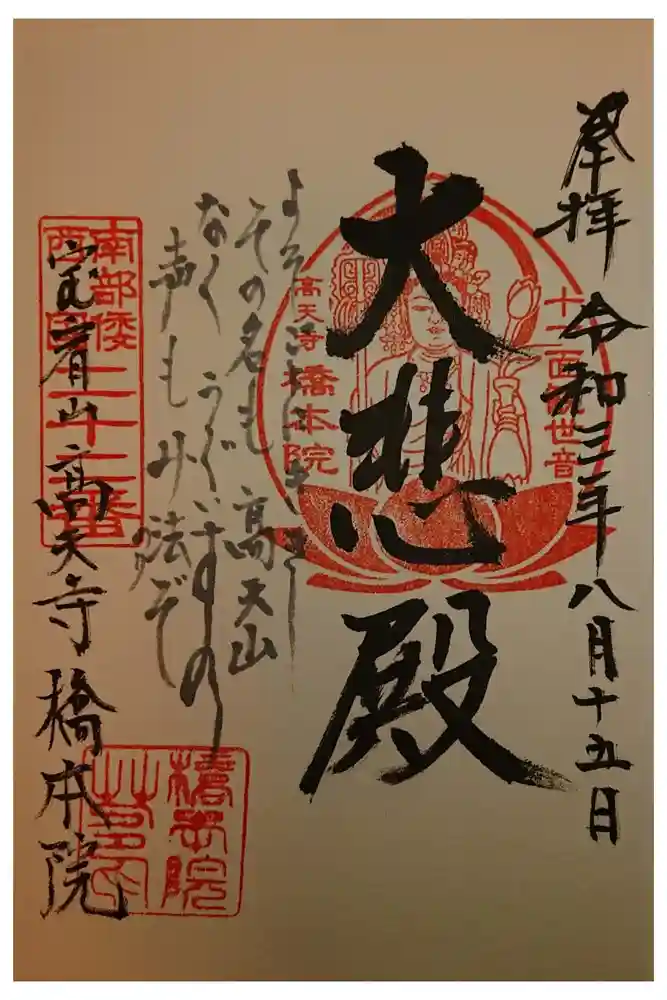 奉拝 令和三年八月十五日
十一面観世音
大悲殿
高天寺
橋本院
その名も高天山
なくうぐいすの
声もみ法ぞ
南部倭
西国三十三番
宝宥山高天寺橋本院
橋本院